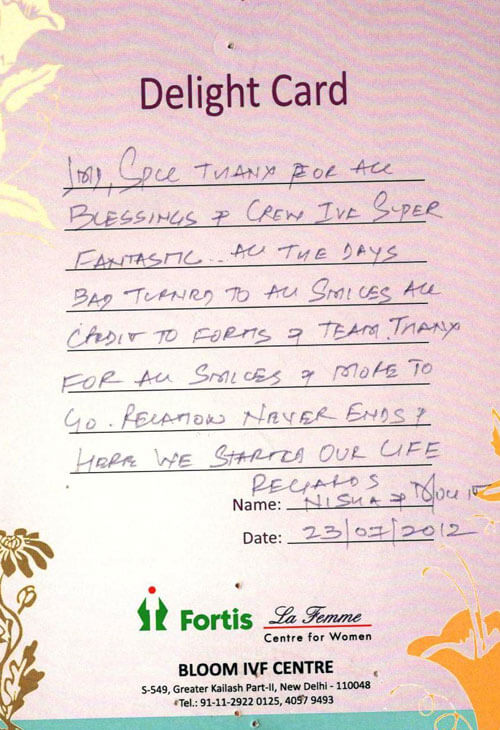 Delight Card
SPCL THANX FOR ALL
BLESSINGS & CREW IVE SUPER
FANTASTIC.. ALL THE DAYS
BAD TURNED TO ALL SMILES ALL
CREDIT TO FORTIS & TEAM. THANX
FOR ALL SMILES & MORE TO
GO. RELATION NEVER ENDS &
HERE WE STARTED OUR LIFE
REGARDS
Name: NISHA &
Date: 23/07/2012
Fortis La Femme
Centre for Women
BLOOM IVF CENTRE
S-549, Greater Kailash Part-II, New Delhi - 110048
Tel.: 91-11-2922 0125, 4057 9493